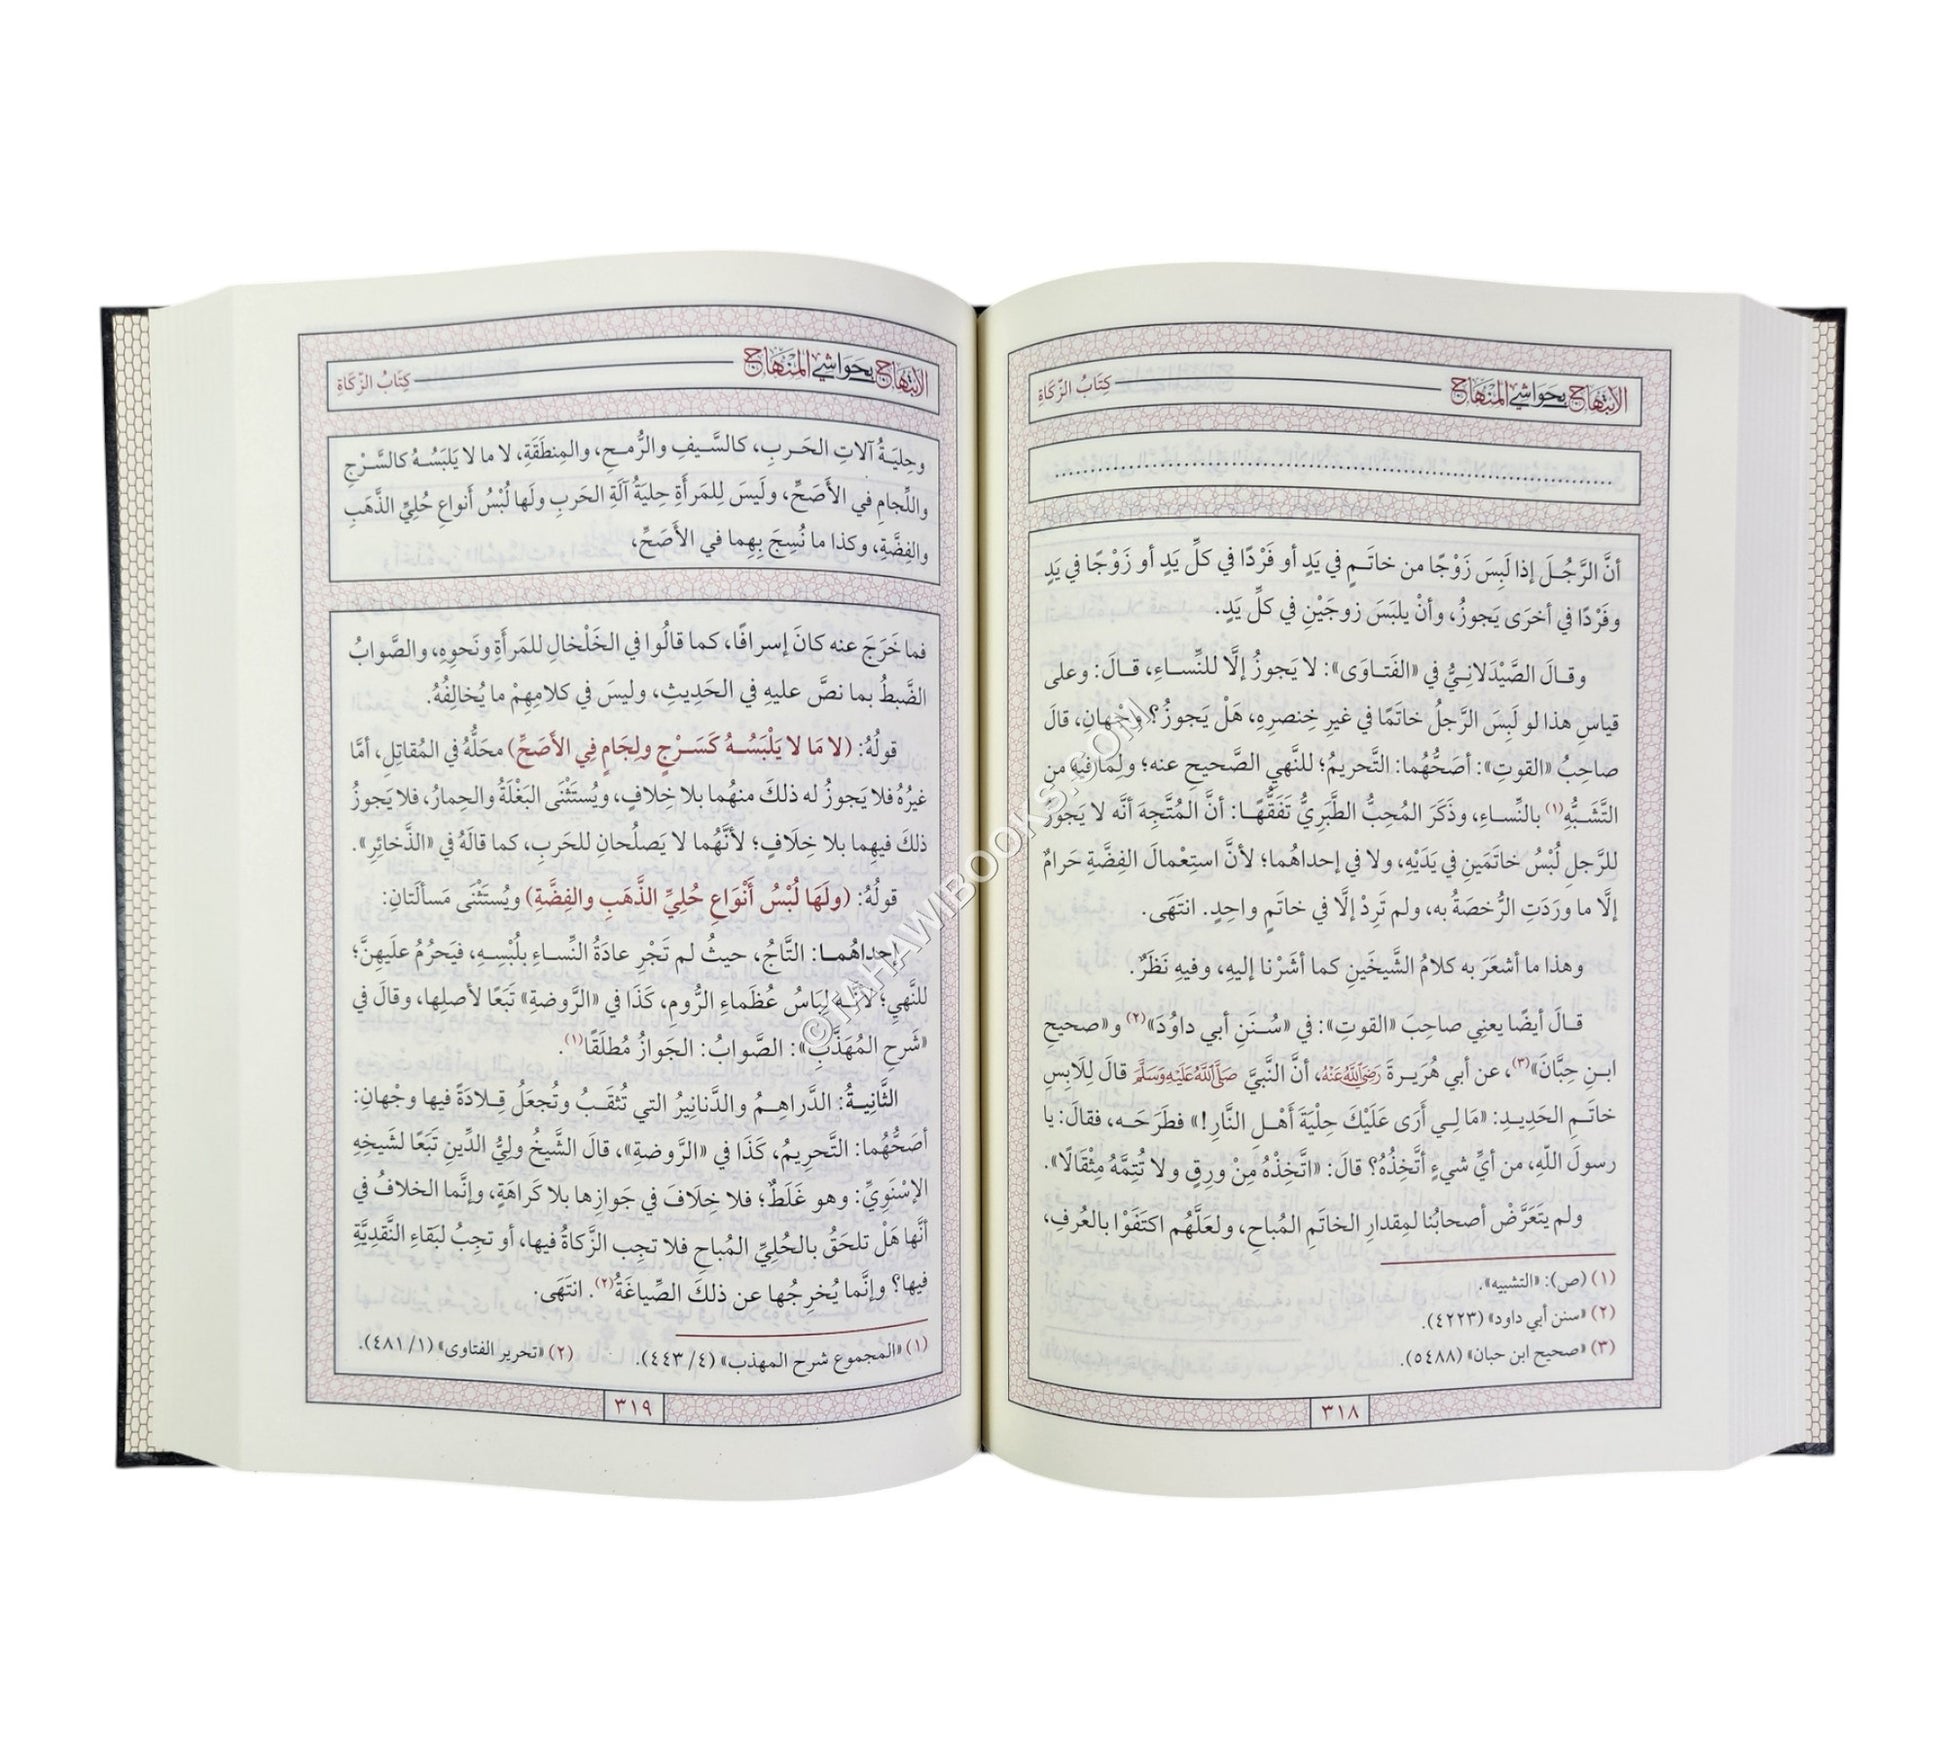 الابتهاج بحواشي المنهاج
كِتَابُ الزَّكَاةِ
أنَّ الرَّجُلَ إذا لَبِسَ زَوْجًا من خاتَمٍ في يَدٍ أو فَرْدًا في كلِّ يَدٍ أو زَوْجًا في يَدٍ
وفَرْدًا في أخرَى يَجوزُ، وأنْ يلبَسَ زوجَيْنِ في كلِّ يَدٍ.
وقالَ الصَّيْدَلانِيُّ في «الفَتاوَى»: لا يَجوزُ إلَّا للنِّساءِ، قالَ: وعلى
قياسِ هذا لو لَبِسَ الرَّجلُ خاتَمًا في غيرِ خِنصرِهِ، هَلْ يَجوزُ؟ وجْهانِ، قالَ
صاحِبُ «القوتِ»: أصَحُّهُما: التَّحريمُ؛ للنَّهيِ الصَّحيحِ عنه؛ ولِما فيهِ من
التَّشَبُّهِ(١) بالنِّساءِ، وذَكَرَ المُحِبُّ الطَّبَرِيُّ تَفَقُّهًا: أنَّ المُتَّجِهَ أنَّه لا يَجوزُ
للرَّجلِ لُبْسُ خاتَمَينِ في يَدَيْهِ، ولا في إحداهُما؛ لأنَّ استِعْمالَ الفِضَّةِ حَرامٌ
إلَّا ما ورَدَتِ الرُّخصَةُ به، ولم تَرِدْ إلَّا في خاتَمٍ واحِدٍ. انتَهَى.
وهذا ما أشعَرَ به كلامُ الشَّيخَينِ كما أشَرْنا إليهِ، وفيهِ نَظَرٌ.
قالَ أيضًا يعنِي صاحِبَ «القوتِ»: في «سُنَنِ أبي داوُدَ»(٢) و«صحيحِ
ابنِ حِبَّانَ»(٣)، عن أبي هُرَيرةَ رَضِيَ اللَّهُ عَنْهُ، أنَّ النَّبيَّ صَلَّى اللَّهُ عَلَيْهِ وَسَلَّمَ قالَ لِلَابِسِ
خاتَمِ الحَدِيدِ: «مَا لِي أَرَى عَلَيْكَ حِلْيَةَ أَهْلِ النَّارِ!» فطَرَحَه، فقالَ: يا
رسولَ اللّهِ، من أيِّ شيءٍ أتَّخِذُهُ؟ قالَ: «اتَّخِذْهُ مِنْ ورِقٍ ولا تُتِمَّهُ مِثْقَالًا».
ولم يتَعَرَّضْ أصحابُنا لمِقدارِ الخاتَمِ المُباحِ، ولعَلَّهُم اكتَفَوْا بالعُرفِ،
(١) (ص): «التشبيه».
(٢) «سنن أبي داود» (٤٢٢٣).
(٣) «صحيح ابن حبان» (٥٤٨٨).
٣١٨
الابتهاج بحواشي المنهاج
كِتَابُ الزَّكَاةِ
وحِليَةُ آلاتِ الحَربِ، كالسَّيفِ والرُّمحِ، والمِنطَقَةِ، لا ما لا يَلبَسُهُ كالسَّرْجِ
واللِّجامِ في الأَصَحِّ، ولَيسَ لِلمَرأَةِ حِليَةُ آلَةِ الحَربِ ولَها لُبْسُ أَنواعِ حُليِّ الذَّهَبِ
والفِضَّةِ، وكذا ما نُسِجَ بِهِما في الأَصَحِّ،
فما خَرَجَ عنه كانَ إسرافًا، كما قالُوا في الخَلْخالِ للمَرأَةِ ونَحوِهِ، والصَّوابُ
الضَّبطُ بما نصَّ عليهِ في الحَدِيثِ، وليسَ في كلامِهِمْ ما يُخالِفُهُ.
قولُهُ: (لا مَا لا يَلْبَسُهُ كَسَرْجٍ ولِجَامٍ فِي الأَصَحِّ) محَلُّهُ في المُقاتِلِ، أمَّا
غيرُهُ فلا يَجوزُ له ذلكَ منهُما بلا خِلافٍ، ويُستَثْنَى البَغْلَةُ والحِمارُ، فلا يَجوزُ
ذلكَ فيهِما بلا خِلَافٍ؛ لأنَّهُما لا يَصلُحانِ للحَربِ، كما قالَهُ في «الذَّخائِرِ».
قولُهُ: (ولَهَا لُبْسُ أَنْوَاعِ حُلِيِّ الذَّهَبِ والفِضَّةِ) ويُستَثْنَى مَسألَتانِ:
إحداهُما: التَّاجُ، حيثُ لم تَجْرِ عادَةُ النِّساءِ بلُبْسِهِ، فيَحرُمُ علَيهِنَّ؛
للنَّهيِ؛ لأنَّه لِبَاسُ عُظَماءِ الرُّومِ، كَذَا في «الرَّوضةِ» تَبَعًا لأصلِها، وقالَ في
«شَرحِ المُهَذَّبِ»: الصَّوابُ: الجَوازُ مُطلَقًا(١).
الثَّانِيةُ: الدَّراهِمُ والدَّنانِيرُ التي تُثقَبُ وتُجعَلُ قِلادَةً فيها وجْهانِ:
أصَحُّهُما: التَّحرِيمُ، كَذَا في «الرَّوضةِ»، قالَ الشَّيخُ ولِيُّ الدِّينِ تَبَعًا لشَيخِهِ
الإسْنَوِيِّ: وهو غَلَطٌ؛ فلا خِلَافَ في جَوازِها بلا كَراهَةٍ، وإنَّما الخلافُ في
أنَّها هَلْ تلحَقُ بالحُليِّ المُباحِ فلا تجِب الزَّكاةُ فيها، أو تجِبُ لبَقاءِ النَّقدِيَّةِ
فيها؟ وإنَّما يُخرِجُها عن ذلكَ الصِّياغَةُ(٢). انتَهَى.
(١) «المجموع شرح المهذب» (٤/ ٤٤٣).
(٢) «تحرير الفتاوى» (١/ ٤٨١).
٣١٩